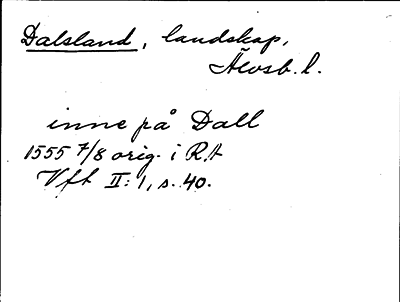 Dalsland, landskap,
Älvsb. l.
inne på Dall
1555 7/8 orig. i RA
Vft II: 1, s. 40.